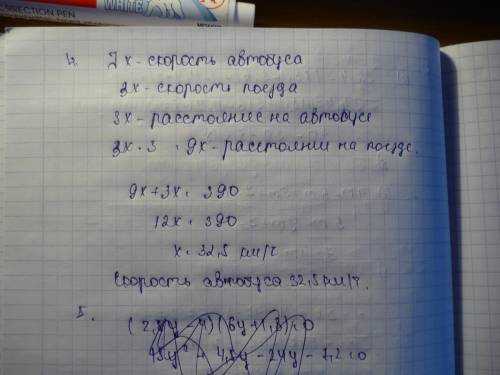 DIRECTION PEN
WHITE
4. 2x - скорость автобуса
3x - скорость поезда
3x - расстояние на автобусе
3x · 3 = 9x - расстояние на поезде.
9x + 3x = 390
12x = 390
x = 32,5 км/ч
Скорость автобуса 32,5 км/ч.
5.